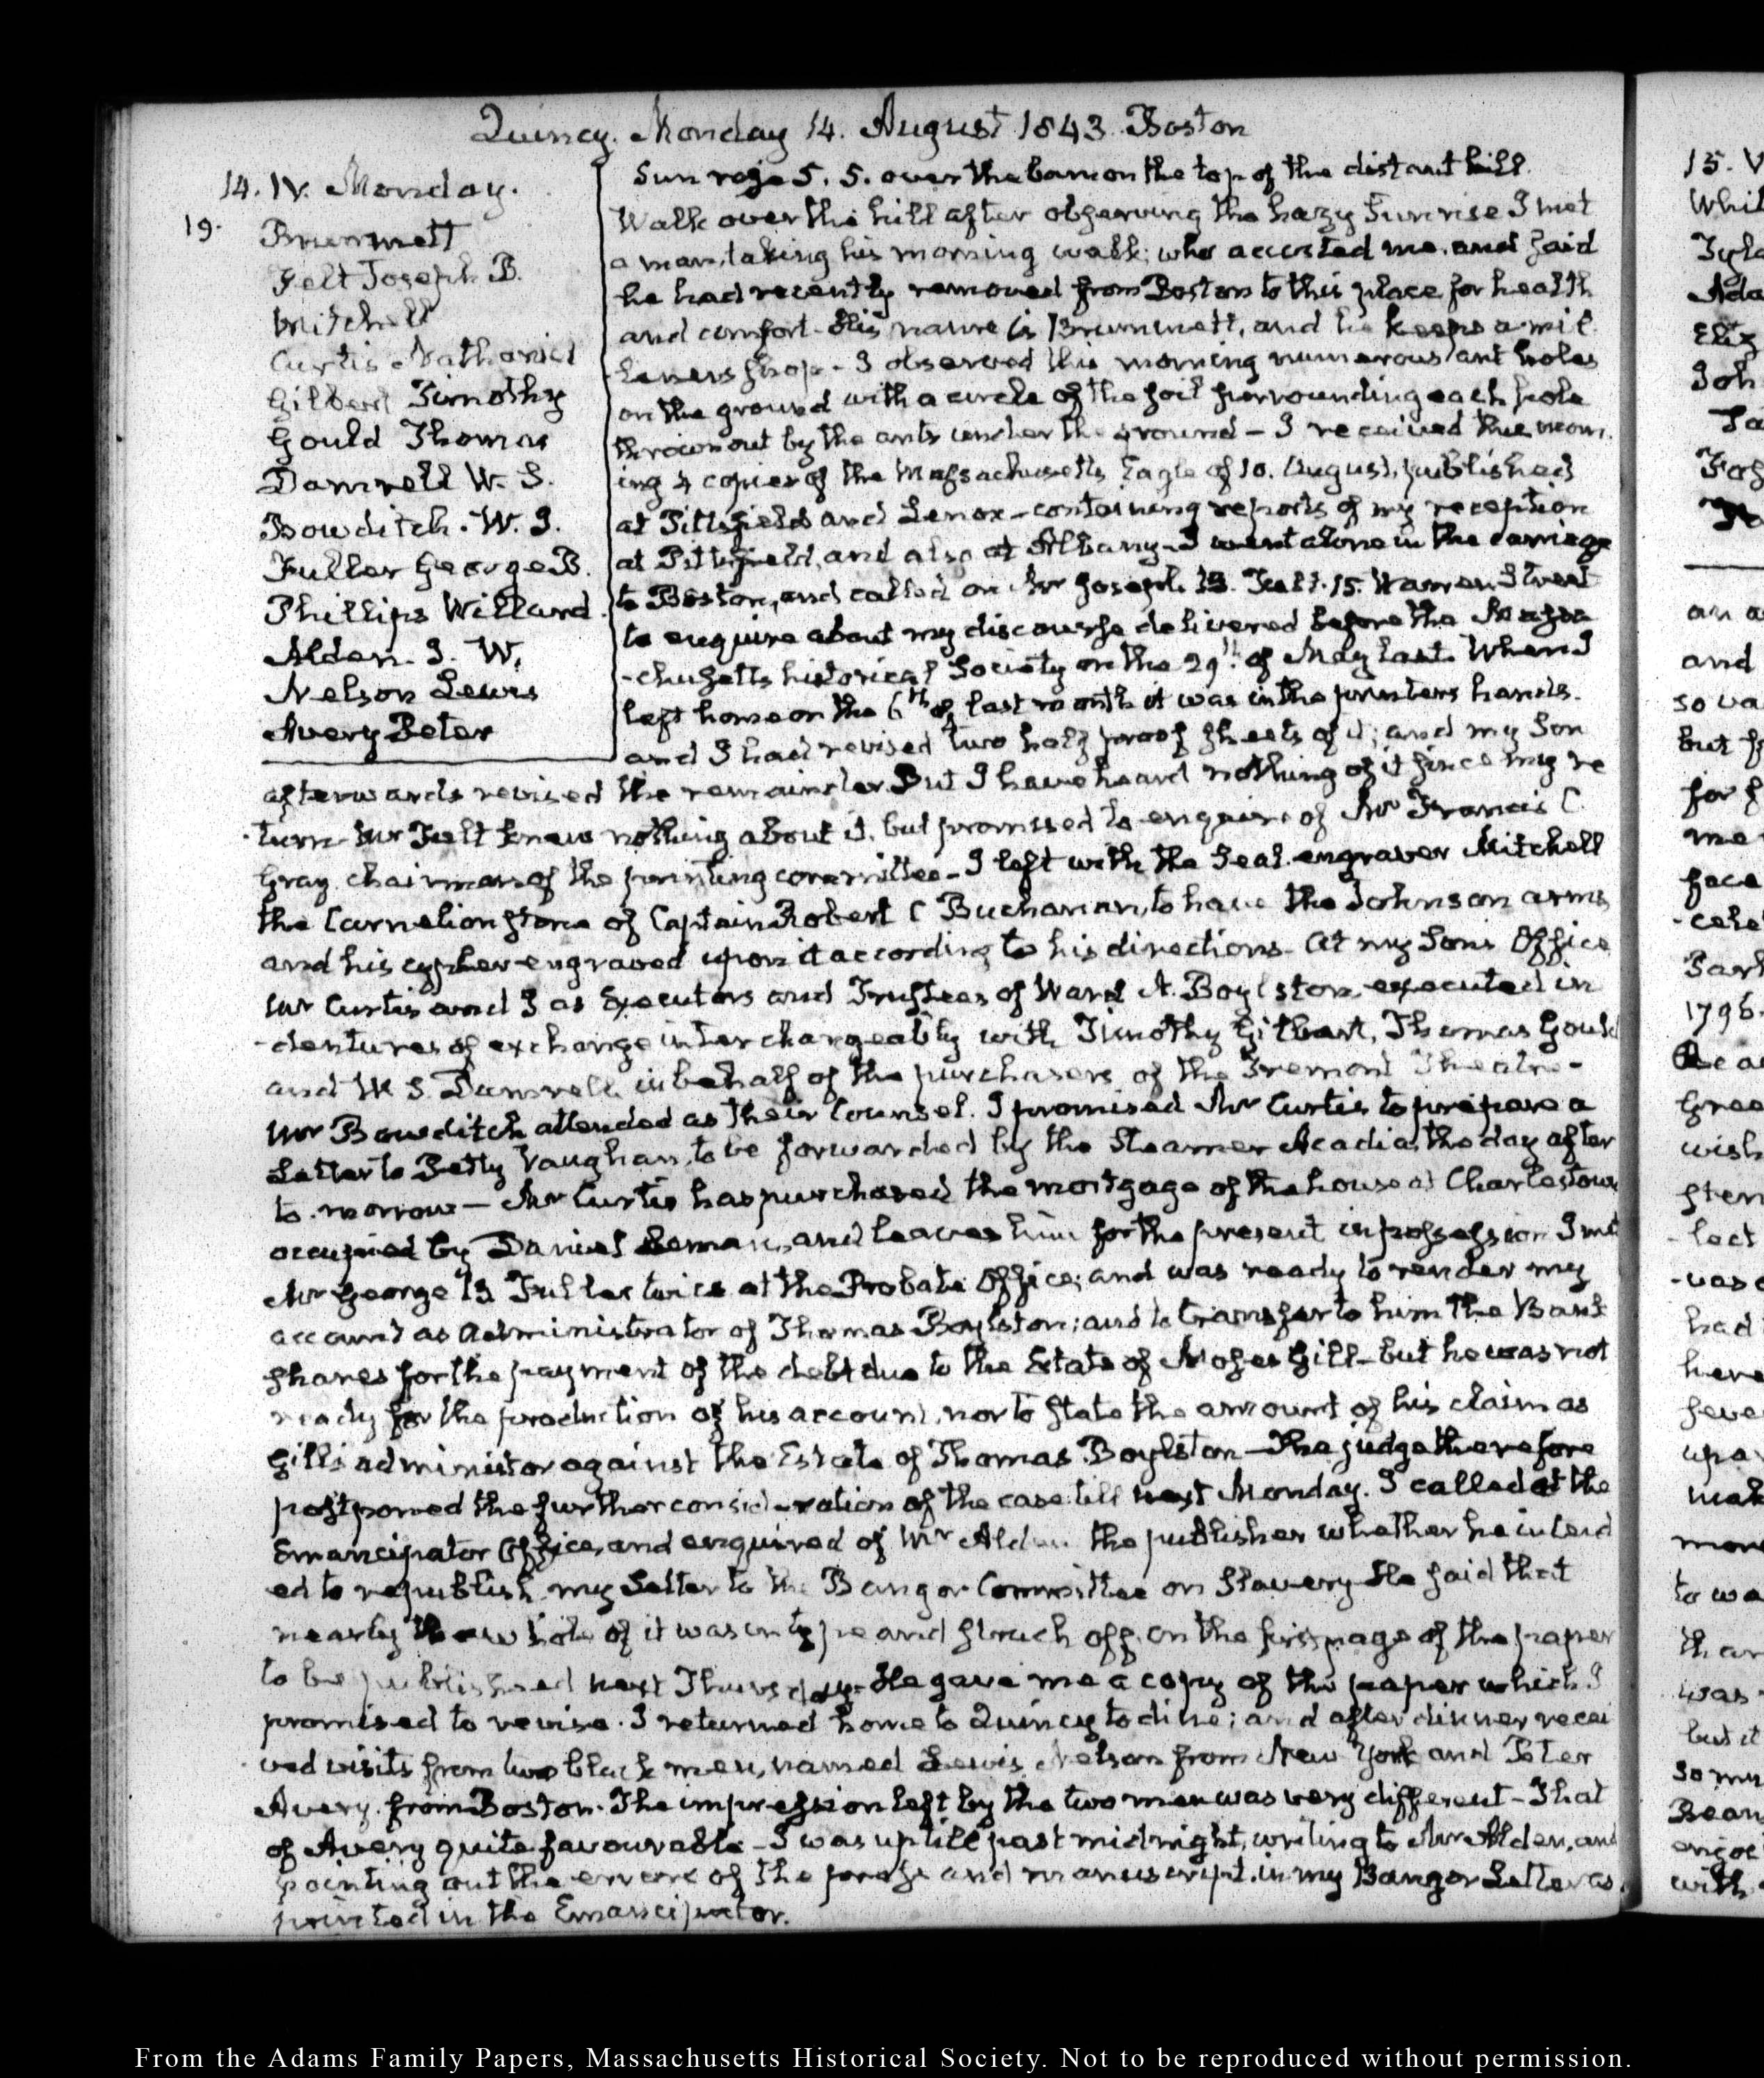 Quincy. Monday 14. August 1843. Boston
14. IV. Monday.
19.
Brummett
Felt Joseph B.
Mitchell
Curtis Nathaniel
Gilbert Timothy
Gould Thomas
Damrell W. S.
Bowditch. W. I.
Fuller George B.
Phillips Willard
Alden. J. W.
Nelson Lewis
Avery Peter
Sun rose 5. 5. over the barn on the top of the distant hill.
Walk over the hill after observing the hazy Sun rise I met
a man, taking his morning walk; who accosted me. and said
he had recently removed from Boston to this place for health
and comfort. His name is Brummett, and he keeps a mil
-leners shop. - I observed this morning numerous ant holes
on the ground with a circle of the soil surrounding each hole
thrown out by the ants under the ground - I received this morn.
ing 4 copies of the Massachusetts Eagle of 10. August, published
at Pittsfield and Lenox - containing reports of my reception
at Pittsfield, and also at Albany - I went alone in the carriage
to Boston, and called on Mr Joseph B. Felt. 15. Warren Street
to enquire about my discourse delivered before the Massa
-chusetts historical Society on the 29th. of May last. When I
left home on the 6th of last month it was in the printers hands.
and I had revised two half proof sheets of it; and my Son
afterwards revised the remainder. But I have heard nothing of it since my re
-turn - Mr Felt knew nothing about it. but promised to enquire of Mr Francis C.
Gray. chairman of the printing committee - I left with the Seal. engraver Mitchell
the Carnelion stone of Captain Robert C Buchanan, to have the Johnson arms
and his cypher engraved upon it according to his directions - At my Sons Office
Mr Curtis and I as Executors and Trustees of Ward N. Boylston, executed in
-dentures of exchange interchangeably with Timothy Gilbert, Thomas Gould
and W. S. Damrell in behalf of the purchasers of the Tremont Theatre -
Mr Bowditch attended as their Counsel. I promised Mr Curtis to prepare a
Letter to Petty Vaughan, to be forwarded by the Steamer Acadia, the day after
to. morrow — Mr Curtis has purchased the mortgage of the house at Charlestown
occupied by Daniel Leman, and leaves him for the present in possession I met
Mr George B Fuller twice at the Probate Office; and was ready to render my
account as Administrator of Thomas Boylston; and to transfer to him the Bank
shares for the payment of the debt due to the Estate of Moses Gill - but he was not
ready for the production of his account, nor to state the amount of his claim as
Gill's administor against the Estate of Thomas Boylston - The judge therefore
postponed the further consideration of the case till next Monday. I called at the
Emancipator Office, and enquired of Mr Alden the publisher whether he intend
ed to republish my Letter to the Bangor Committee on Slavery - He said that
nearly the whole of it was in type and struck off, on the first page of the paper
to be published next Thursday - He gave me a copy of the paper which I
promised to revise. I returned home to Quincy to dine; and after dinner recei
-ved visits from two black men, named Lewis Nelson from New York and Peter
Avery. from Boston. The impression left by the two men was very different - That
of Avery quite favourable - I was up till past midnight, writing to Mr Alden, and
pointing out the errors of the press and manuscript. in my Bangor Letter as
printed in the Emancipator.
15. V
Whit
Tyle
Ada
Eliz
Joh
an a
and
so va
but
for
me
face
-cele
Park
1796.
wish
had
here
upon
to wa
was
but it
so mu
Bean
with
From the Adams Family Papers, Massachusetts Historical Society. Not to be reproduced without permission.